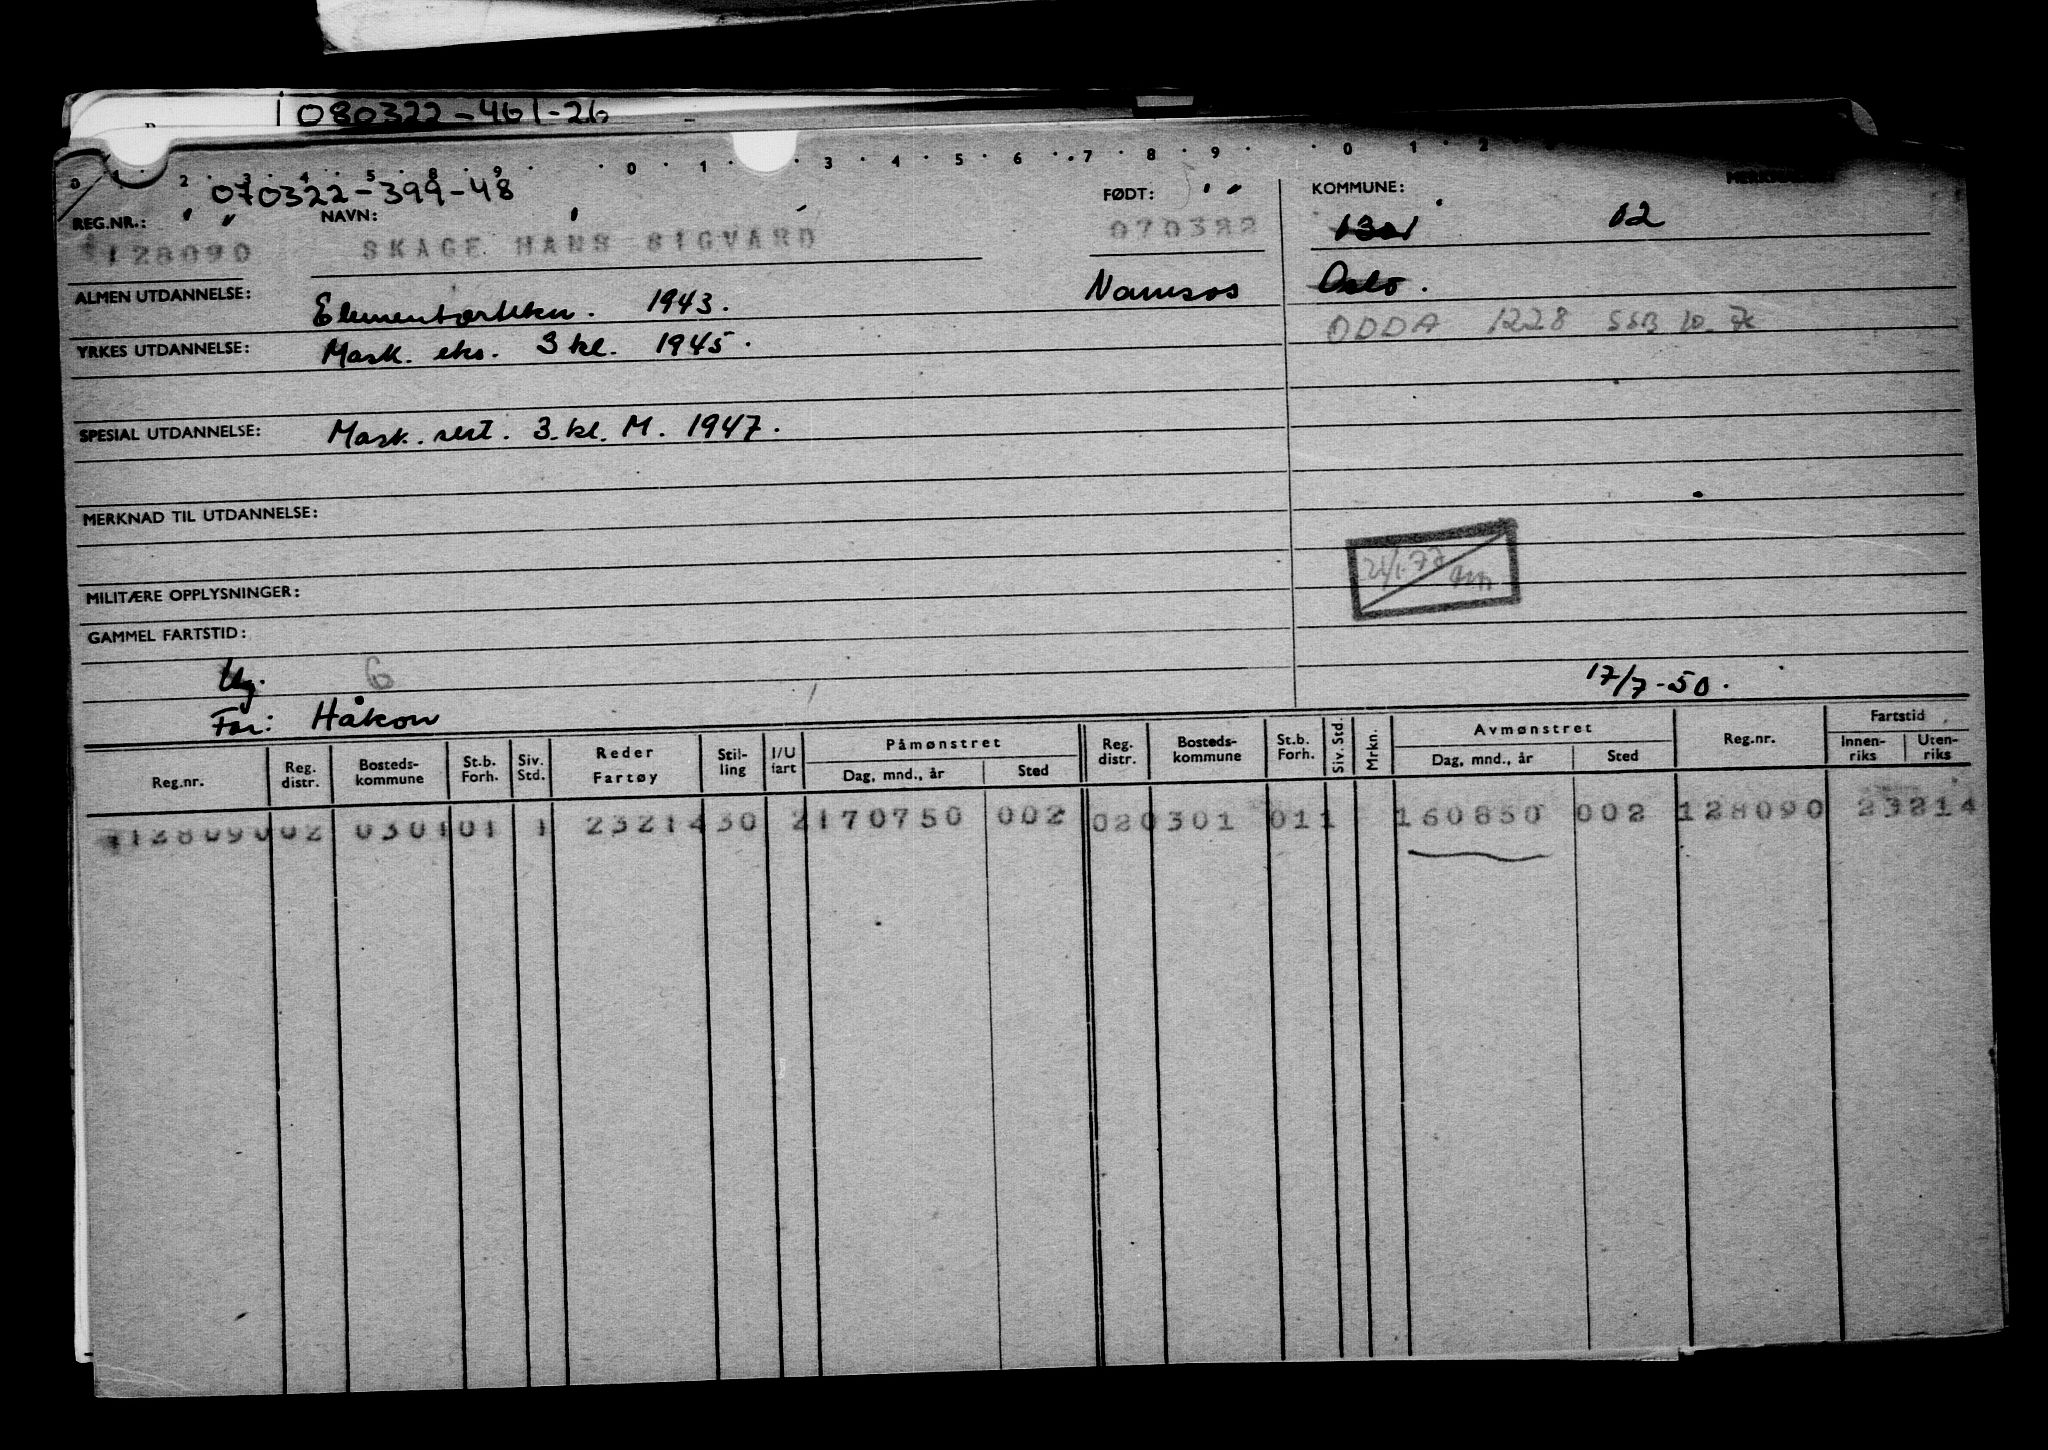 080322-461-26
070322-399-48
REG.NR.: NAVN: FØDT: KOMMUNE:
128090 SKAGE HANS SIGVARD 070322 02
ALMEN UTDANNELSE: 1943. Namsos Oslo.
YRKES UTDANNELSE: Mask. eks. 3 kl. 1945. ODDA 1228 SSB
SPESIAL UTDANNELSE: Mask. sert. 3. kl. M. 1947.
MERKNAD TIL UTDANNELSE:
MILITÆRE OPPLYSNINGER:
GAMMEL FARTSTID:
Ug. 6 17/7-50.
Far: Håkon
Reg.nr. Reg. distr. Bosteds-kommune St.b. Forh. Siv. Std. Reder Fartøy Stil-ling I/U fart Påmønstret Dag, mnd., år Sted Reg. distr. Bosteds-kommune St.b. Forh. Siv. Std. Mrkn. Avmønstret Dag, mnd., år Sted Reg.nr. Fartstid Innen-riks Uten-riks
128090 02 0301 01 1 23214 30 2 170750 002 02 0301 01 1 160850 002 128090 23214